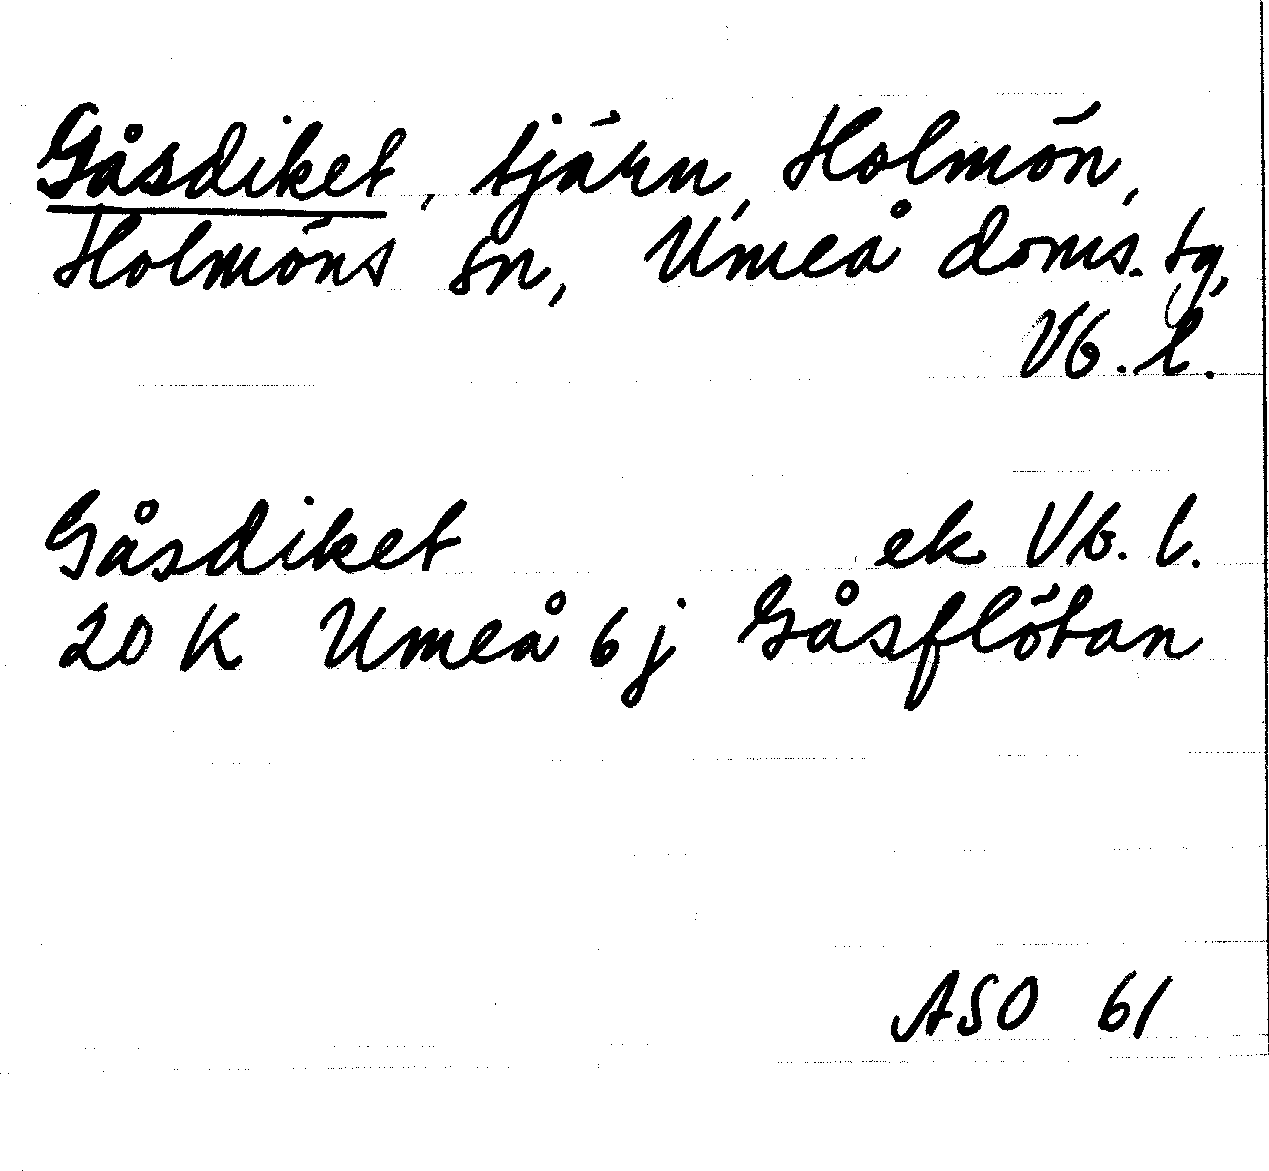 Gåsdiket, tjärn, Holmön,
Holmöns sn, Umeå doms. tg,
Vb. l.
Gåsdiket ek Vb. l.
20 K Umeå 6 j Gåsflötan
ASO 61